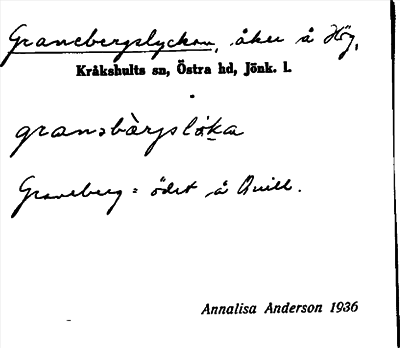 Granebergslyckan, åker å Hög,
Kråkshults sn, Östra hd, Jönk. l.
granəbàrjslø̀ka
Graneberg = ödet å Quill.
Annalisa Anderson 1936